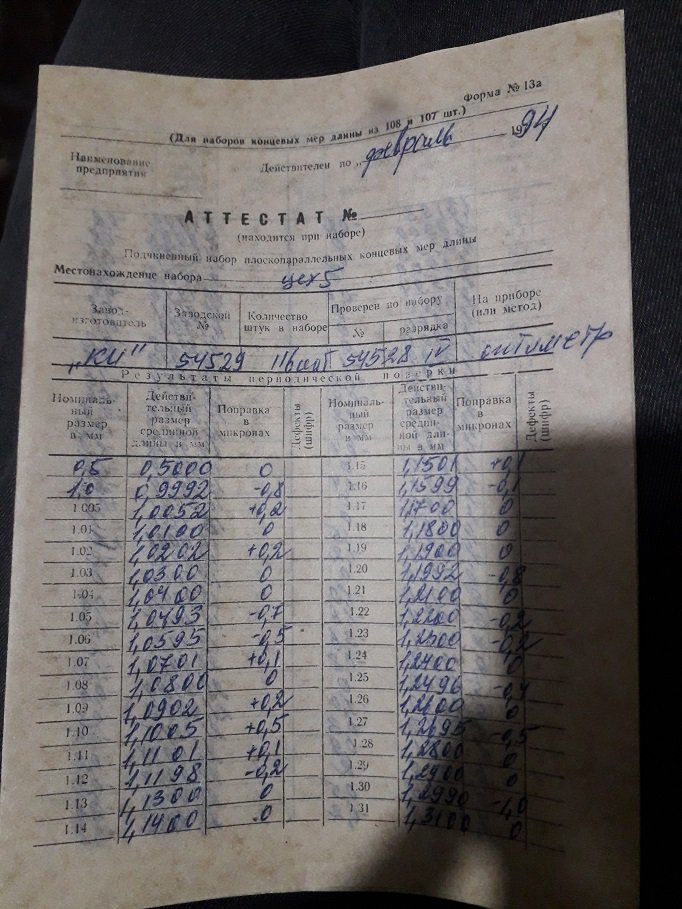 Форма № 13а
(Для наборов концевых мер длины из 108 и 107 шт.)
Наименование предприятия
Действителен по „ февраль 1994
АТТЕСТАТ №
(находится при наборе)
Подчиненный набор плоскопараллельных концевых мер длины
Местонахождение набора цех 5
Завод-изготовитель Заводской № Количество штук в наборе Проверен по набору № разрядка На приборе (или метод)
„КИ" 54529 54528 IV оптиметр
Результаты периодической поверки
Номинальный размер в мм Действительный размер срединной длины в мм Поправка в микронах Дефекты (шифр) Номинальный размер в мм Действительный размер срединной длины в мм Поправка в микронах Дефекты (шифр)
0,5 0,5000 0 1.15 1,1501 +0,1
1.0 0,9992 -0,8 1.16 1,1599 -0,1
1.005 1,0052 +0,2 1.17 1,1700 0
1.01 1,0100 0 1.18 1,1800 0
1.02 1,0202 +0,2 1.19 1,1900 0
1.03 1,0300 0 1.20 1,1992 -0,8
1.04 1,0400 0 1.21 1,2100 0
1.05 1,0493 -0,7 1.22 1,2200 -0,2
1.06 1,0595 -0,5 1.23 1,2300 -0,2
1.07 1,0701 +0,1 1.24 1,2400 0
1.08 1,0800 0 1.25 1,2496 -0,4
1.09 1,0902 +0,2 1.26 1,2600 0
1.10 1,1005 +0,5 1.27 1,2695 -0,5
1.11 1,1101 +0,1 1.28 1,2800 0
1.12 1,1198 -0,2 1.29 1,2900 0
1.13 1,1300 0 1.30 1,2990 -1,0
1.14 1,1400 0 1.31 1,3100 0